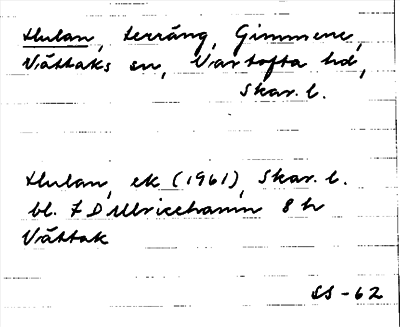 Hulan, terräng, Gimmene,
Vättaks sn, Vartofta hd,
Skar. l.
Hulan, ek (1961), Skar. l.
bl. 7 D Ulricehamn 8 h
Vättak
SS-62